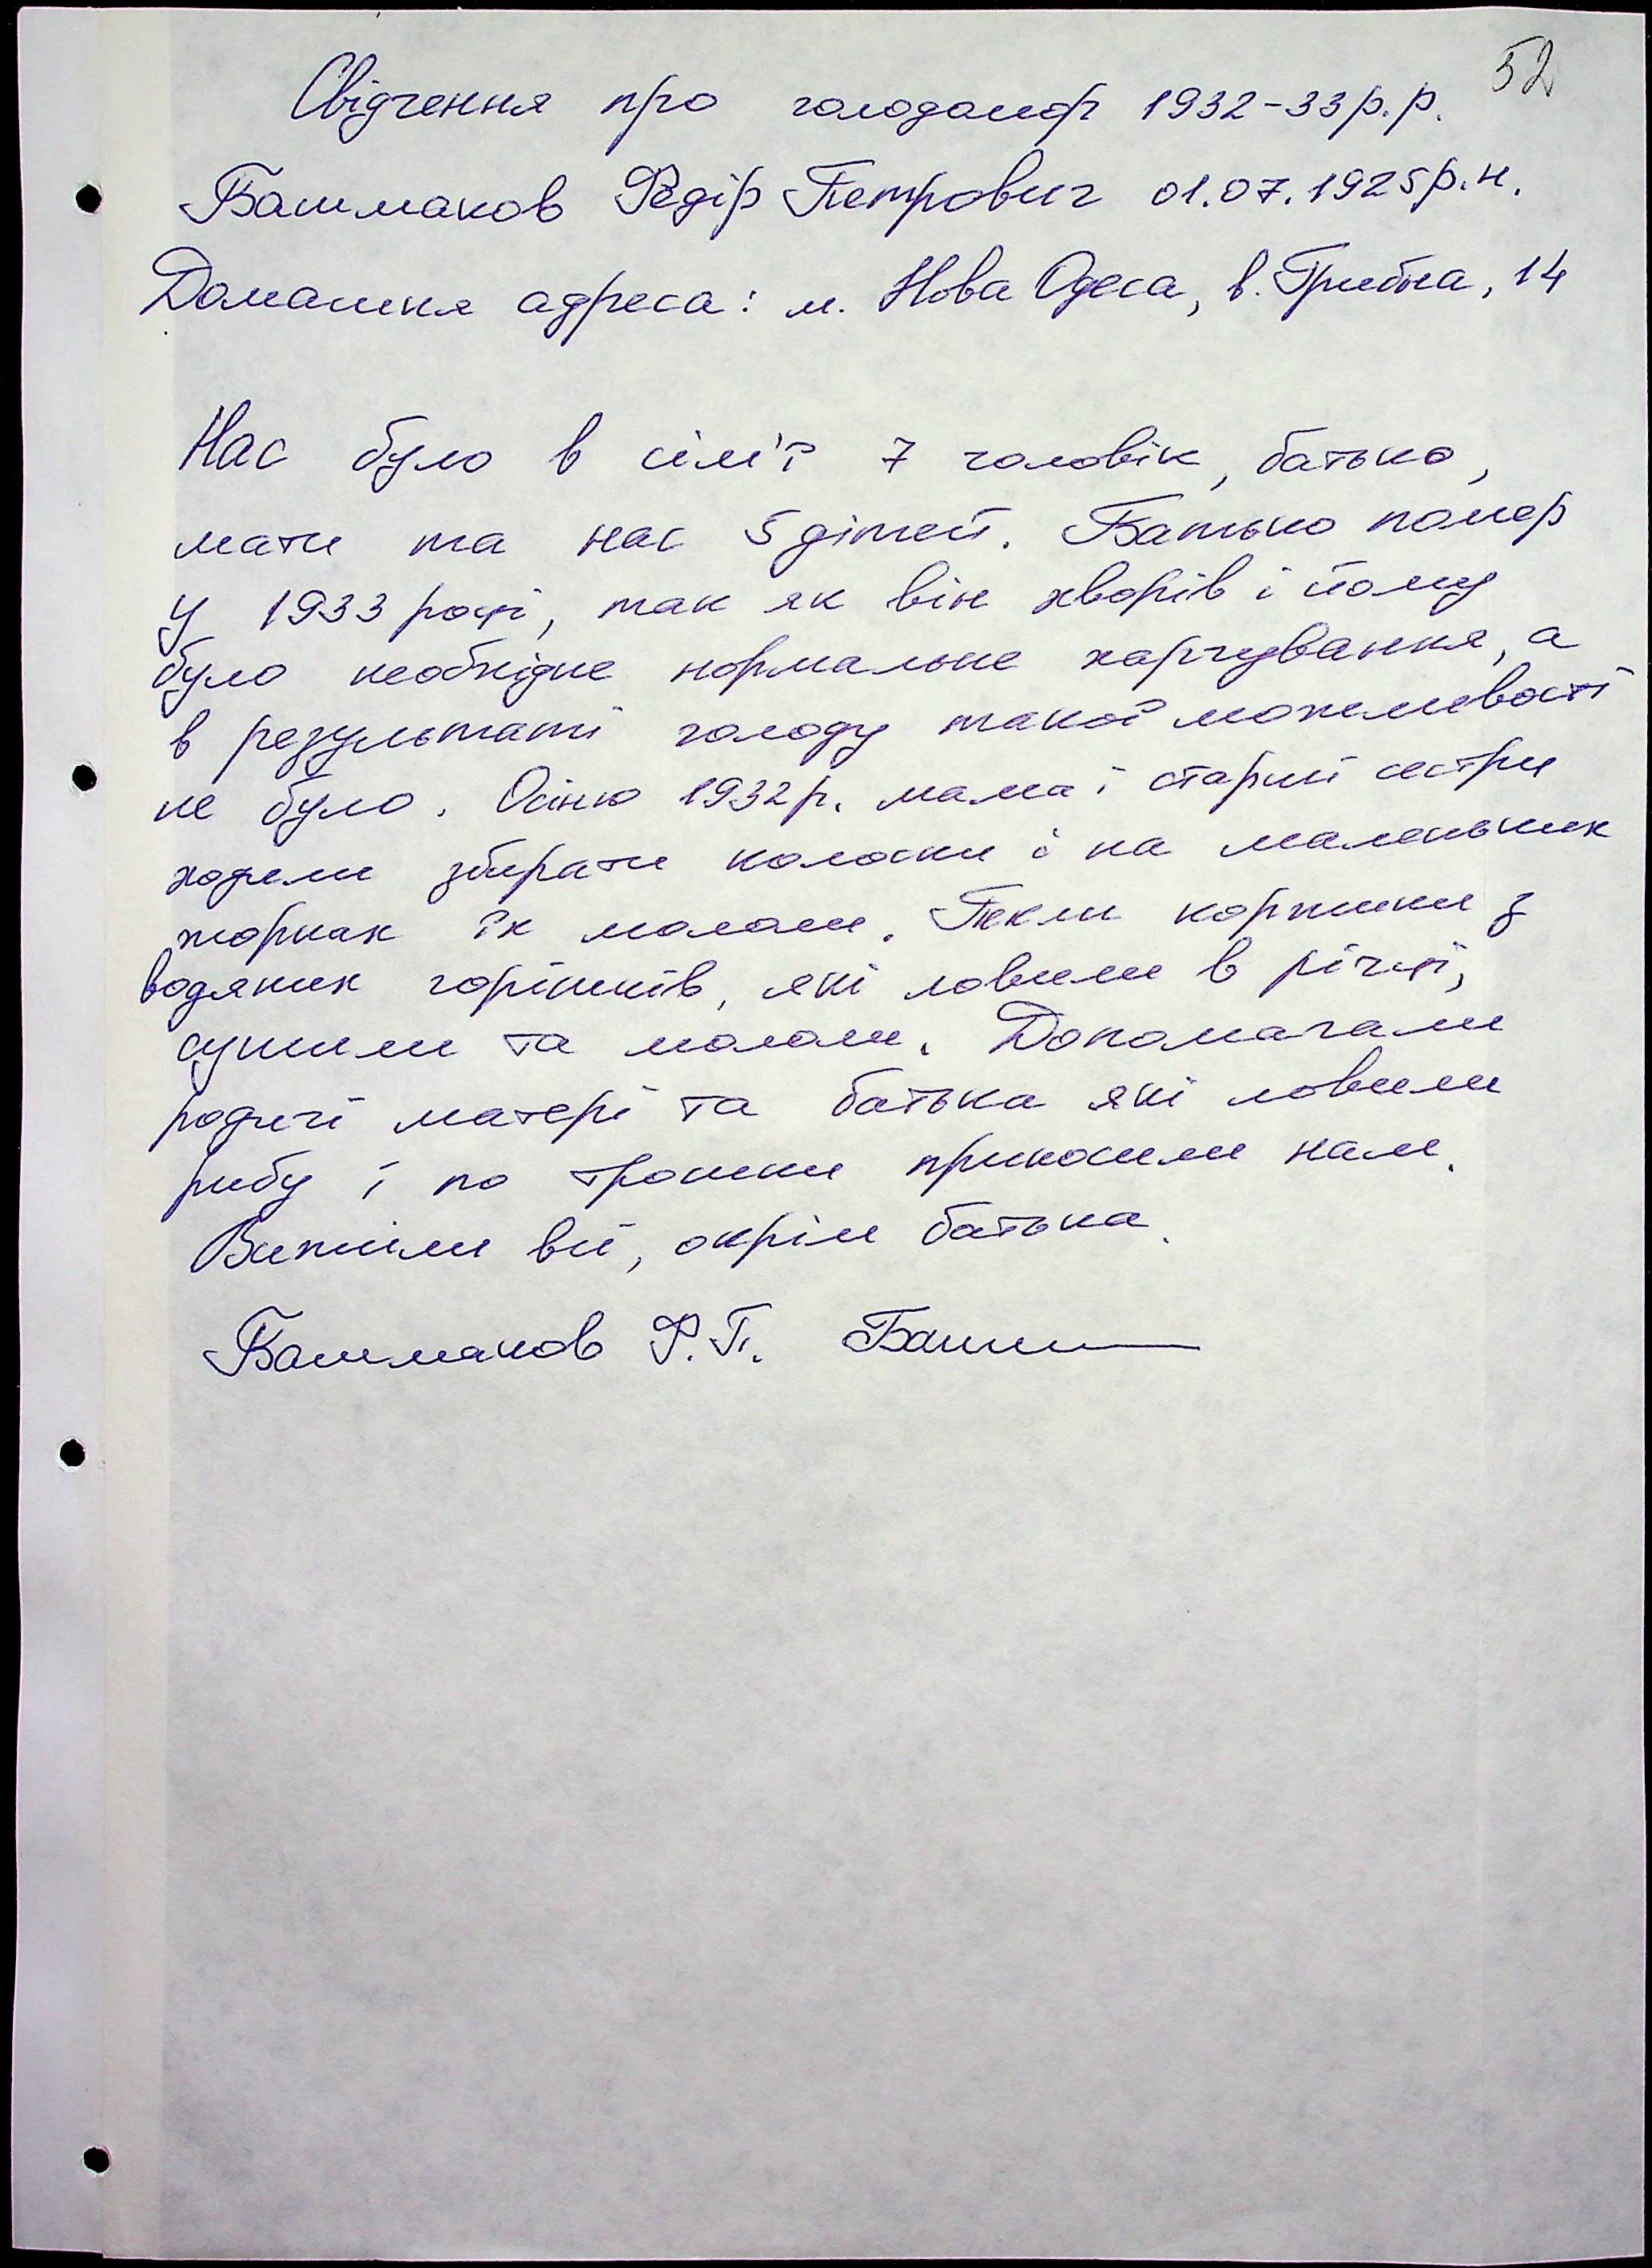 52
Свідчення про голодомор 1932-33 р.р.
Башмаков Федір Петрович 01.07.1925 р.н.
Домашня адреса: м. Нова Одеса, в. Грибна, 14
Нас було в сім'ї 7 чоловік, батько,
мати та нас 5 дітей. Батько помер
у 1933 році, так як він хворів і йому
було необхідне нормальне харчування, а
в результаті голоду такої можливості
не було. Осіню 1932 р. мама і старші сестри
ходили збирати колоски і на маленьких
жорнах їх мололи. Пекли коржики з
водяних горішків, які ловили в річці,
сушили та мололи. Допомагали
родичі матері та батька які ловили
рибу і по трошки приносили нам.
Вижили всі, окрім батька.
Башмаков Ф.П. Баш